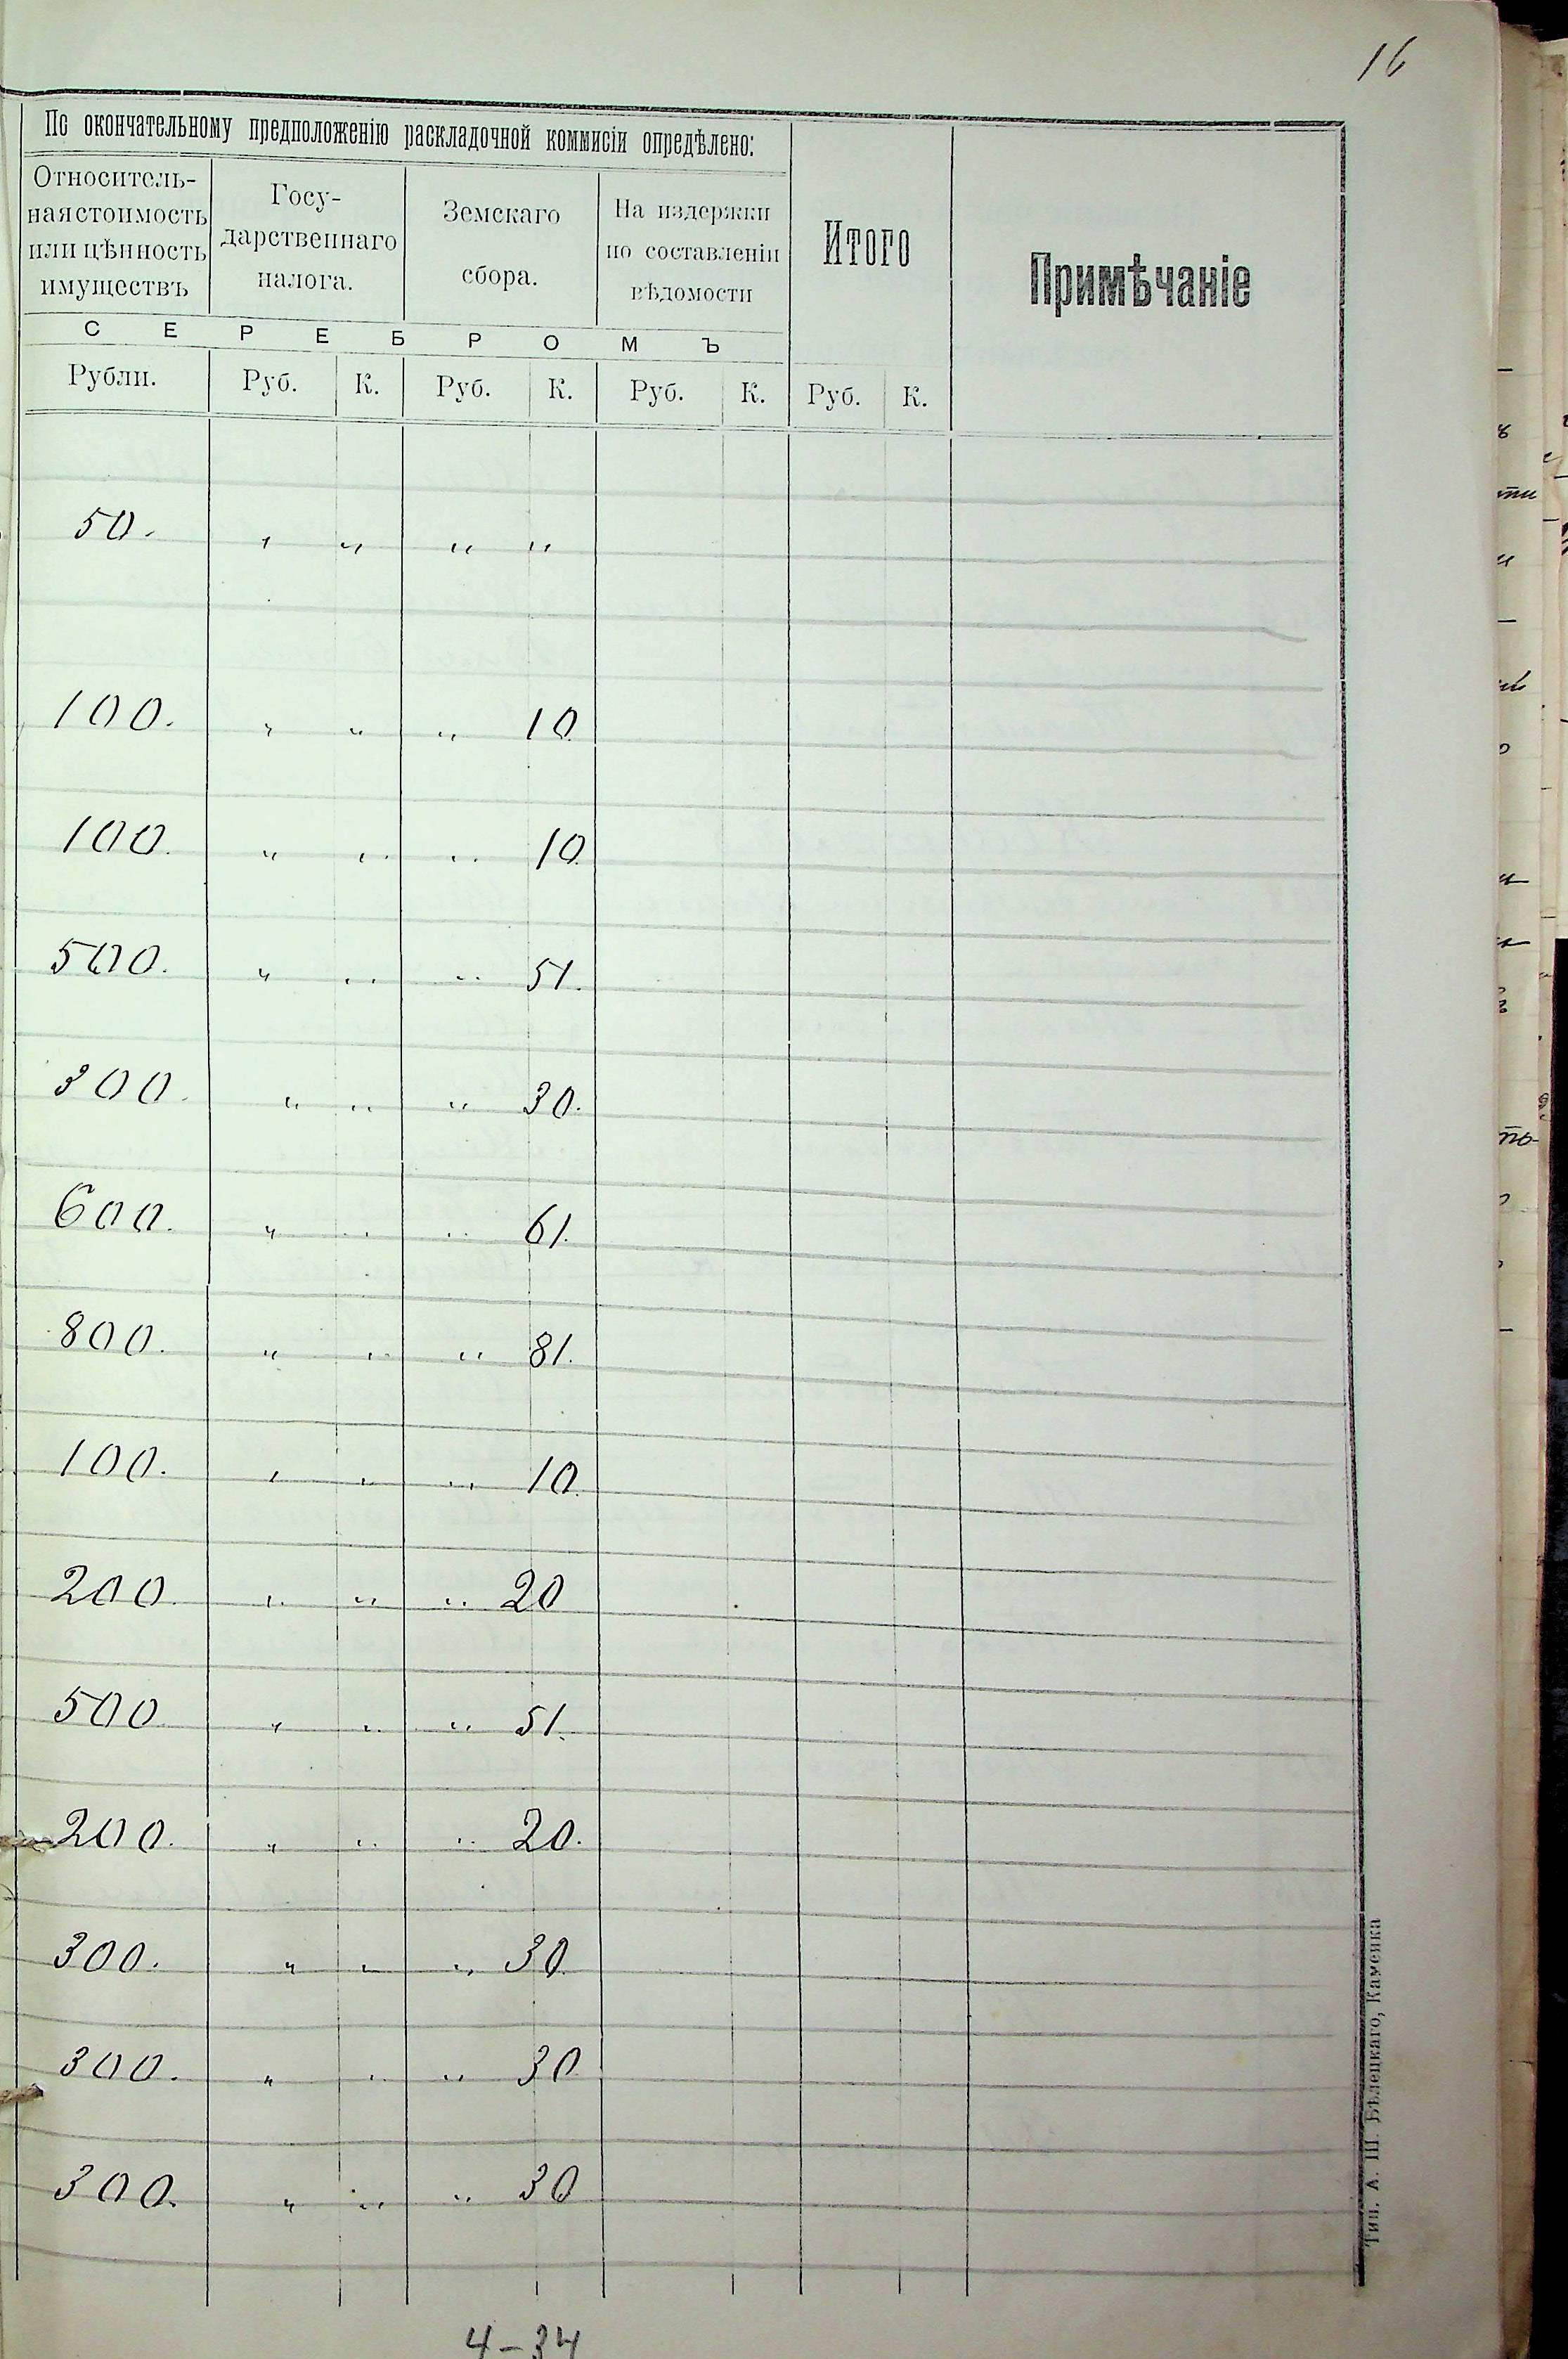 16
По окончательному предположенію раскладочной коммисіи опредѣлено:
Относитель-
ная стоимость
или цѣнность
имуществъ
Госу-
дарственнаго
налога.
Земскаго
сбора.
На издержки
по составленіи
вѣдомости
Итого
Примѣчаніе
С Е Р Е Б Р О М Ъ
Рубли. Руб. К. Руб. К. Руб. К. Руб. К.
50. „ „ „ „
100. „ „ „ 10.
100. „ „ „ 10.
500. „ „ „ 51.
300. „ „ „ 30.
600. „ „ „ 61.
800. „ „ „ 81.
100. „ „ „ 10.
200. „ „ „ 20
500. „ „ „ 51.
200. „ „ „ 20.
300. „ „ „ 30.
300. „ „ „ 30.
300. „ „ „ 30
4-34
Тип. А. Ш. Бѣлецкаго, Каменка